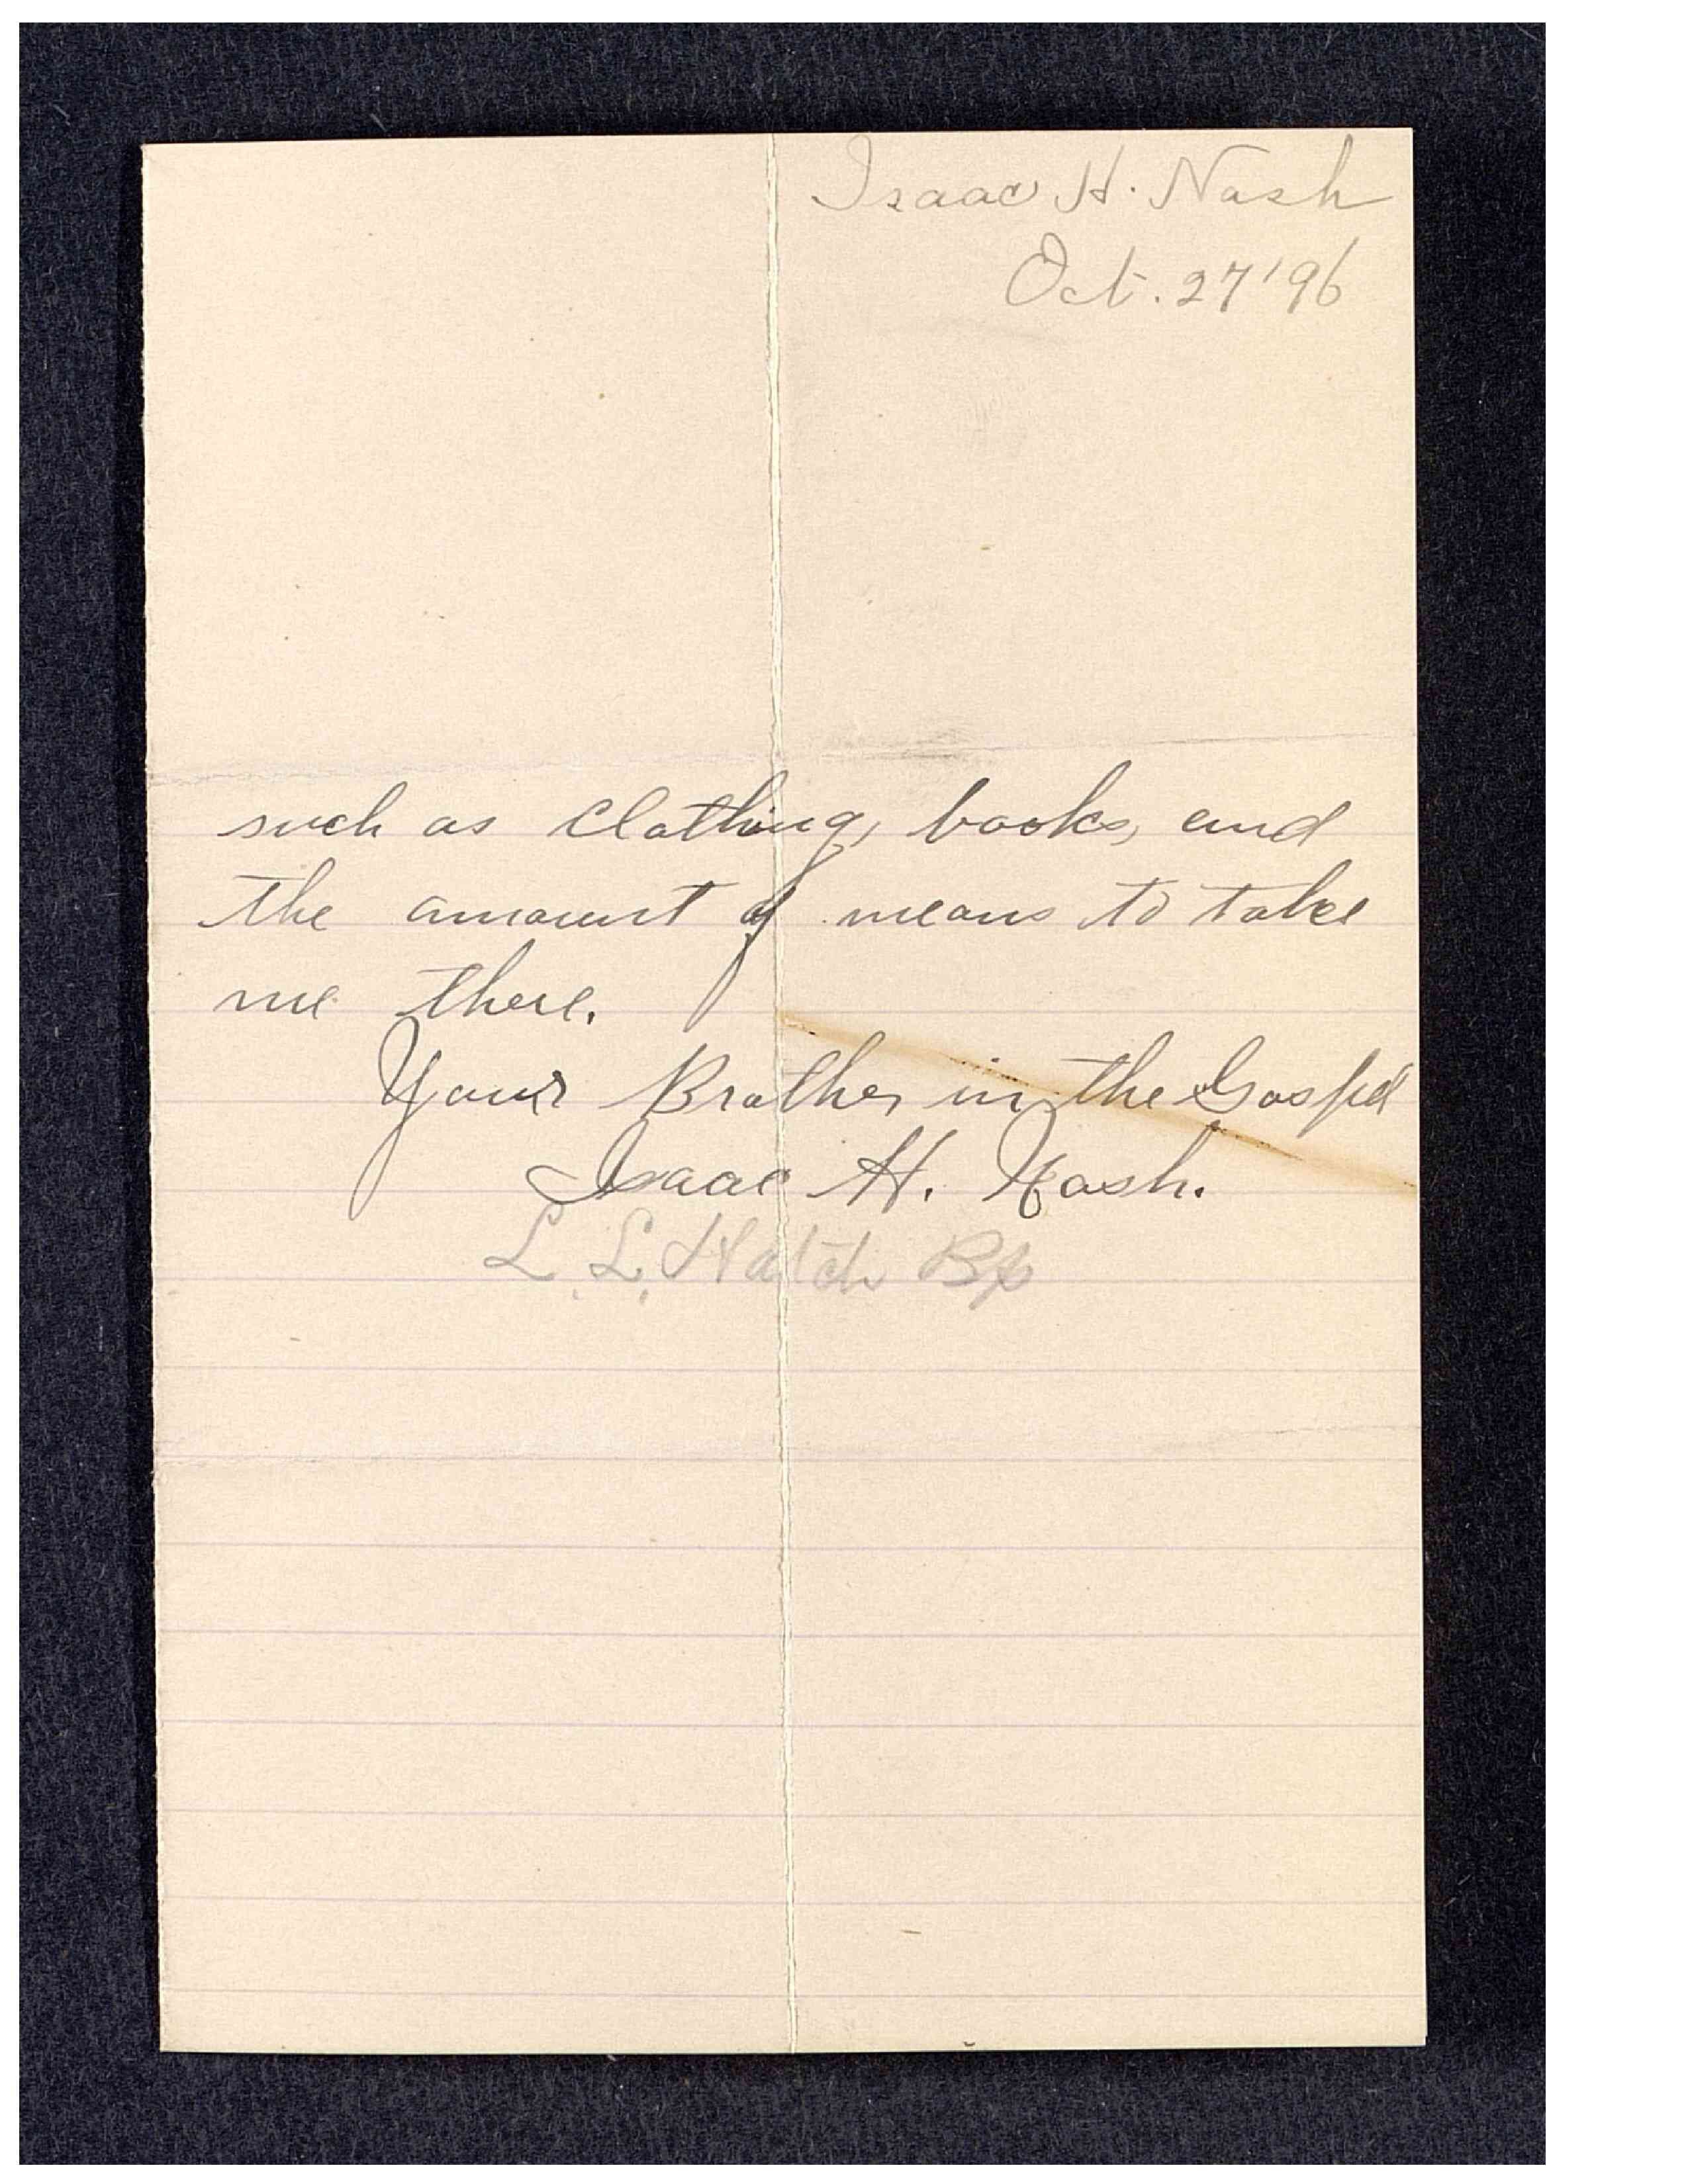 Isaac H. Nash
Oct. 27 '96
such as clothing, books, and
the amount of means to take
me there.
Your Brother in the Gospel
Isaac H. Nash.
L. L. Hatch Bp